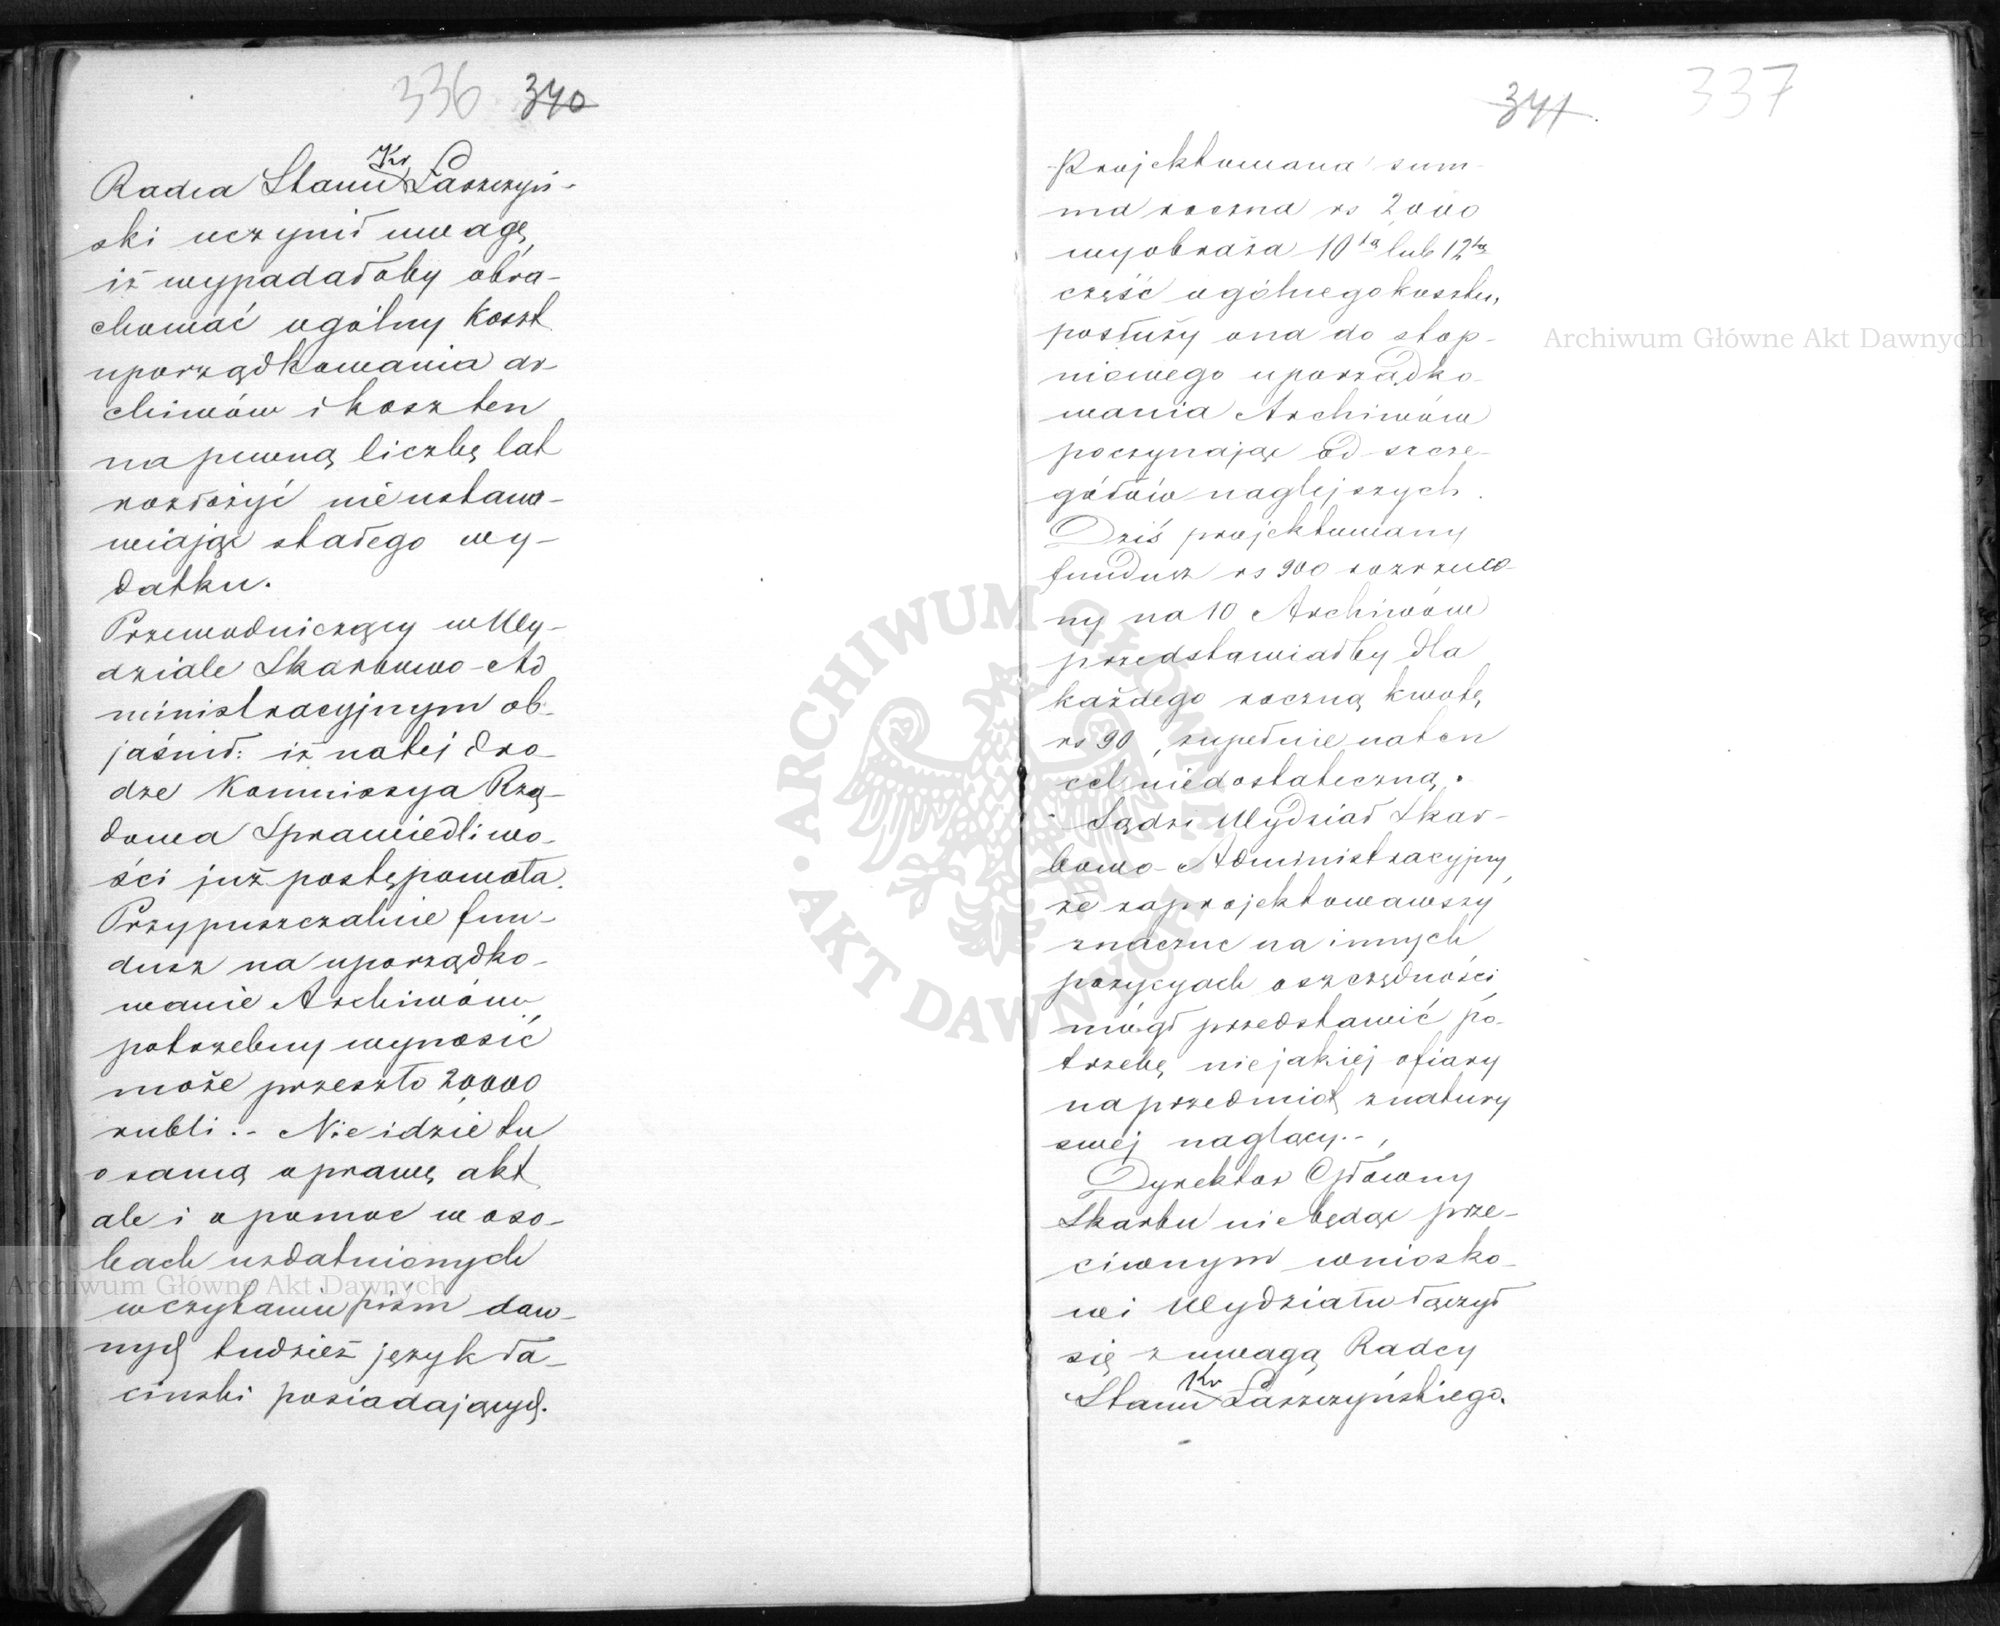 336 340
Radca Stanu Kr. Łaszczyń-
ski uczynił uwagę,
iż wypadałoby obra-
chować ogólny koszt
uporządkowania ar
chiwów i koszt ten
na pewną liczbę lat
rozłożyć nie ustano-
wiając stałego wy-
datku.
Przewodniczący w Wy-
dziale Skarbowo-Ad
ministracyjnym ob-
jaśnił: iż na tej dro-
dze Kommissya Rzą-
dowa Sprawiedliwo-
ści już postępowała.
Przypuszczalnie fun-
dusz na uporządko-
wanie Archiwów
potrzebny wynosić
może przeszło 20,000
rubli.- Nie idzie tu
o samą oprawę akt
ale i o pomoc w oso-
bach uzdatnionych
w czytaniu pism daw-
nych tudzież język ła-
cinski posiadających.
341 337
Projektowana sum-
ma roczna rs 2,000
wyobraża 10tą lub 12tą
część ogólnego kosztu,
posłuży ona do stop-
niowego uporządko-
wania Archiwów
poczynając od szcze-
gółów naglejszych.
Dziś projektowany
fundusz rs 900 rozrzuco-
ny na 10 Archiwów
przedstawiałby dla
każdego roczną kwotę
rs 90, zupełnie na ten
cel niedostateczną.
Sądzi Wydział Skar-
bowo-Administracyjny,
że zaprojektowawszy
znaczne na innych
pozycyach oszczędności,
mógł przedstawić po-
trzebę niejakiej ofiary
na przedmiot z natury
swej naglący.-,
Dyrektor Główny
Skarbu nie będąc prze-
ciwnym wniosko-
wi Wydziału łączył
się z uwagą Radcy
Stanu Kr. Łaszczyńskiego.
Archiwum Główne Akt Dawnych
Archiwum Główne Akt Dawnych
ARCHIWUM GŁÓWNE AKT DAWNYCH